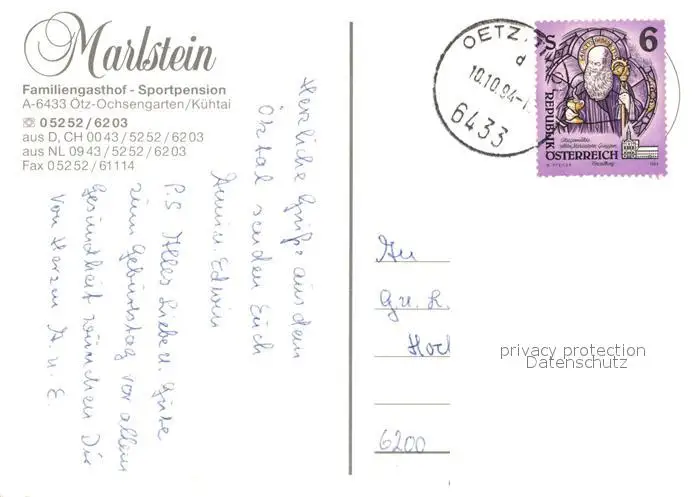 Marlstein
Familiengasthof - Sportpension
A-6433 Ötz-Ochsengarten/Kühtai
☎ 05252/6203
aus D, CH 0043/5252/6203
aus NL 0943/5252/6203
Fax 05252/61114
Herzliche Grüße aus dem
Ötztal senden Euch
Anni u. Edwin
P.S Alles Liebe u. Gute
zum Geburtstag vor allem
Gesundheit wünschen Dir
von Herzen A. u. E.
OETZ
d
10.10.94
6433
S 6
REPUBLIK
ÖSTERREICH
An
H
6200
privacy protection
Datenschutz